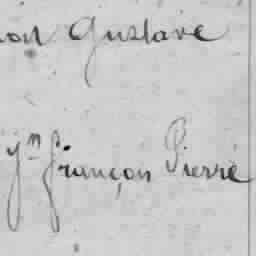 Gustave
Jn françois Pierre